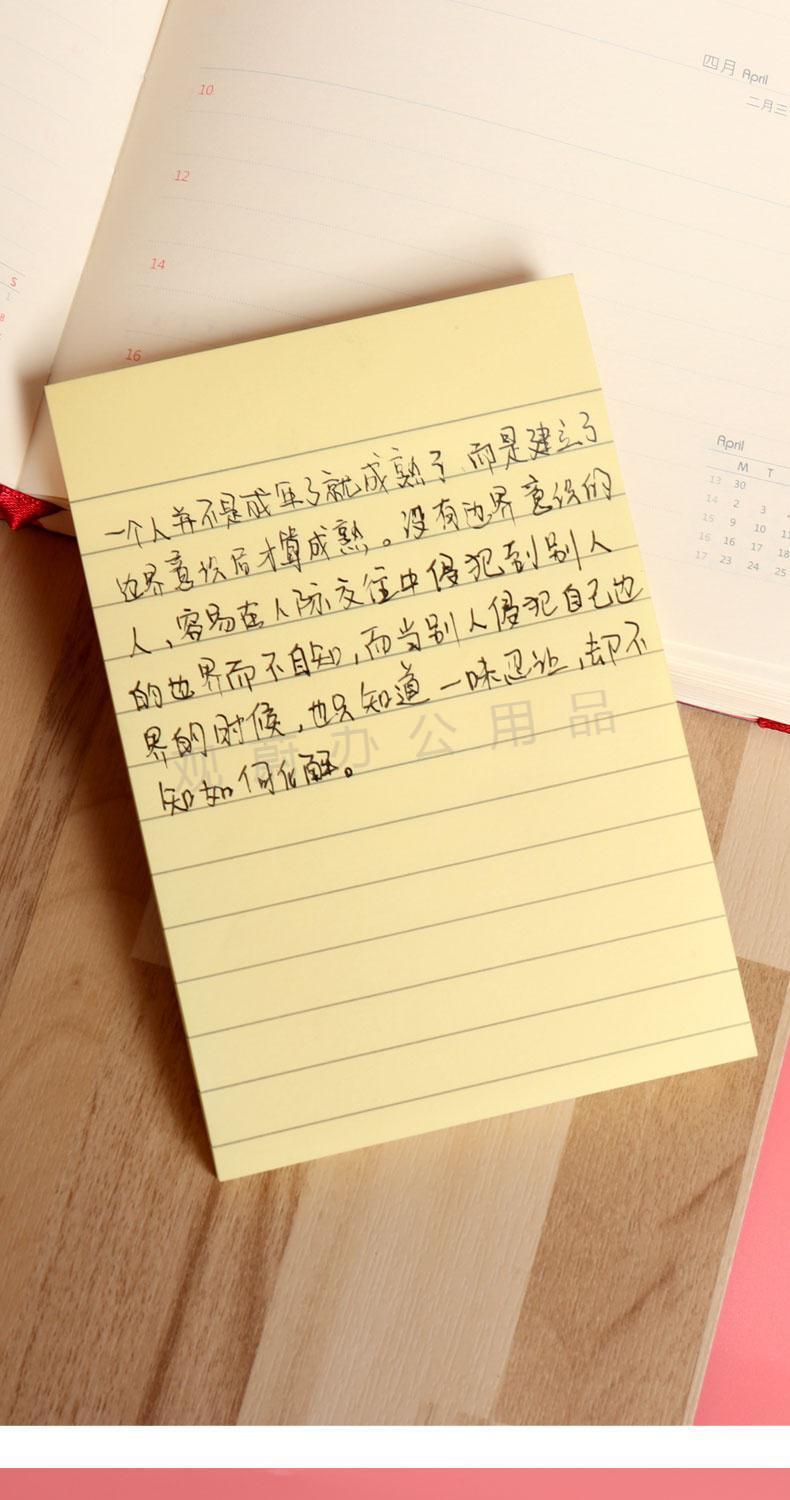 四月 April
二月三
10
12
14
16
S
1
8
April
M T
13 30
14 2 3 4
15 9 10 11
16 16 17 18
17 23 24 25
一个人并不是成年了就成熟了,而是建立了
边界意识后才算成熟。没有边界意识的
人,容易在人际交往中侵犯到别人
的边界而不自知,而当别人侵犯自己边
界的时候,也只知道一味忍让,却不
知如何化解。
观蔚办公用品